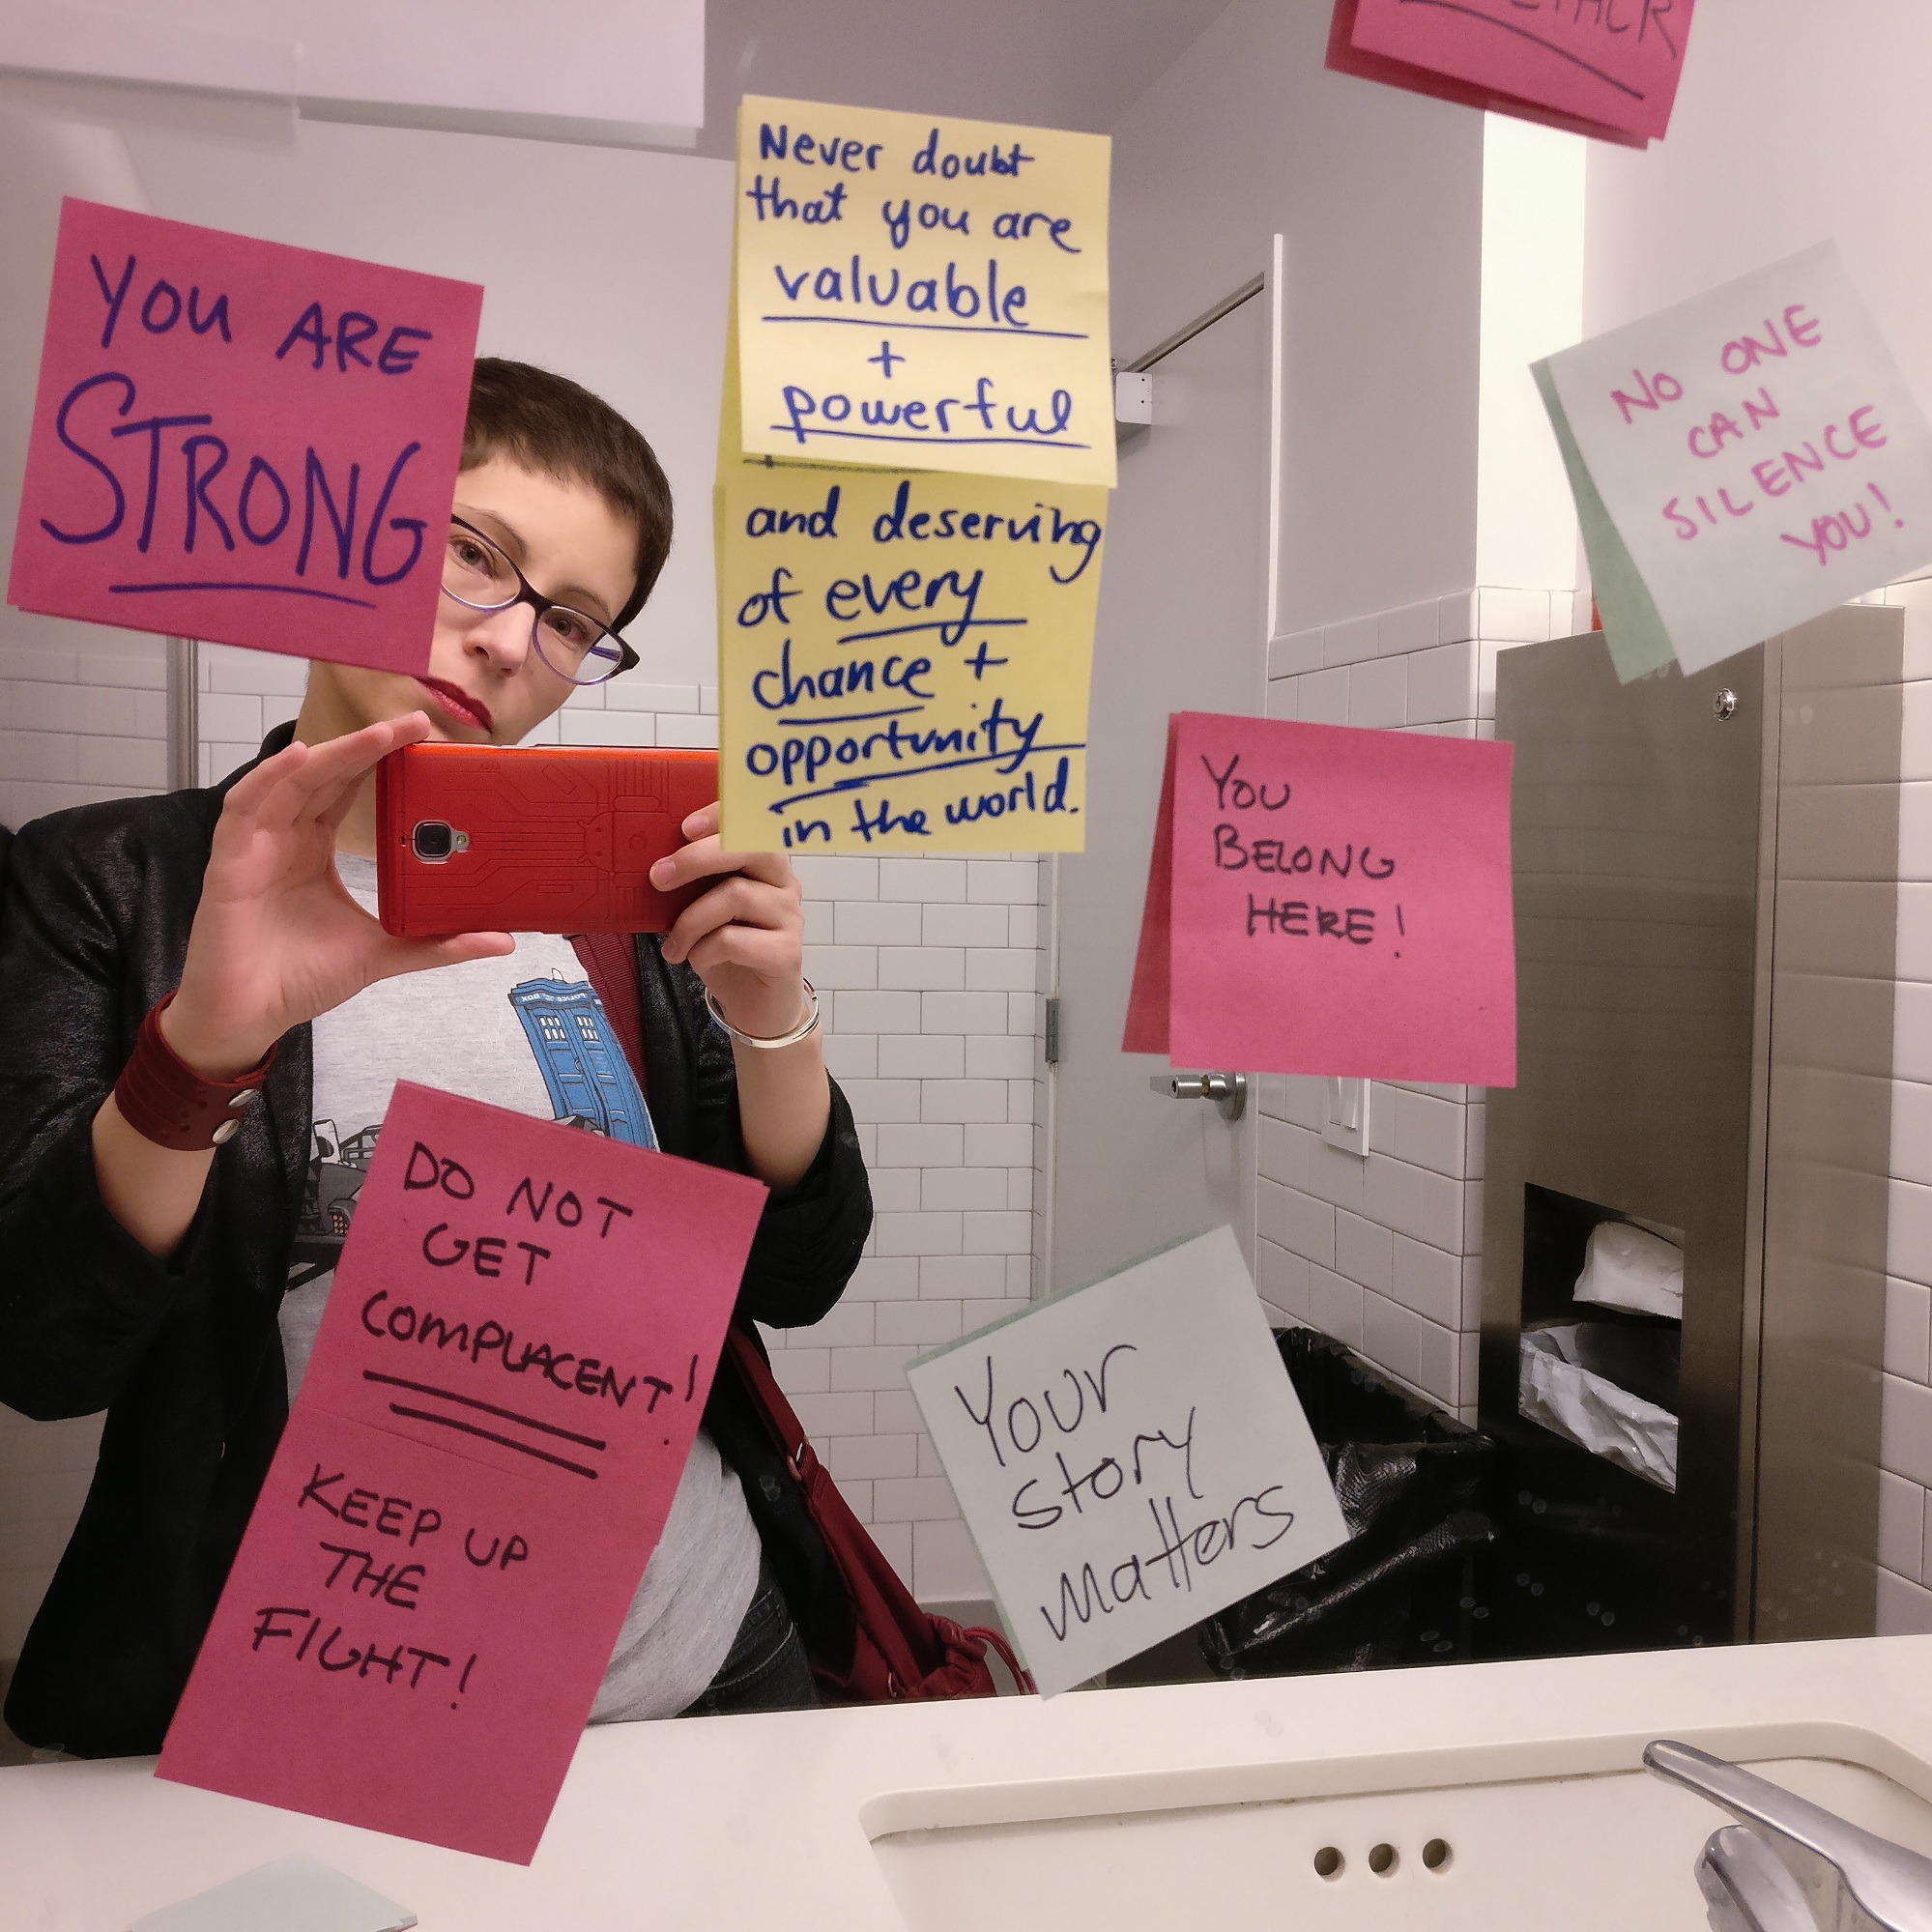 YOU ARE
STRONG
Never doubt
that you are
valuable
+
powerful
and deserving
of every
chance +
opportunity
in the world.
NO ONE
CAN
SILENCE
YOU!
YOU
BELONG
HERE!
DO NOT
GET
COMPLACENT!
KEEP UP
THE
FIGHT!
Your
story
matters
POLICE BOX